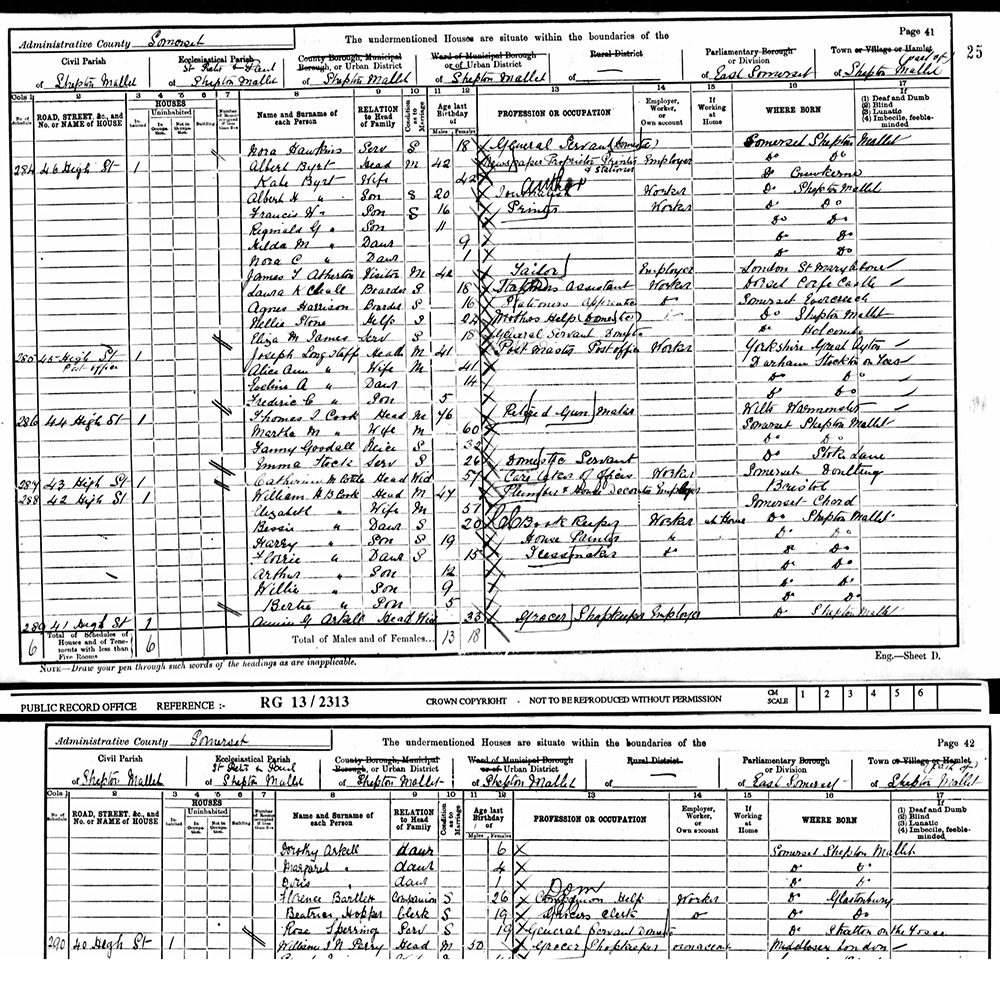 Page 41
25
Administrative County Somerset The undermentioned Houses are situate within the boundaries of the
Civil Parish Ecclesiastical Parish County Borough, Municipal Borough, or Urban District Ward of Municipal Borough or of Urban District Rural District Parliamentary Borough or Division Town or Village or Hamlet
of Shepton Mallet St Peter & Paul of Shepton Mallet of Shepton Mallet of Shepton Mallet of of East Somerset of (part of) Shepton Mallet
Cols 1 2 3 4 5 6 7 8 9 10 11 12 13 14 15 16 17
No. of Schedule ROAD, STREET, &c., and No. or NAME of HOUSE HOUSES Inhabited Uninhabited In Occupation Not in Occupation Building Name and Surname of each Person RELATION to Head of Family Condition as to Marriage Age last Birthday of Males Females PROFESSION OR OCCUPATION Employer, Worker, or Own account If Working at Home WHERE BORN If (1) Deaf and Dumb (2) Blind (3) Lunatic (4) Imbecile, feeble-minded
Nora Hawkins Serv S 18 General Servant (Domestic) Somerset Shepton Mallet
284 46 High St 1 Albert Byrt Head M 42 Newspaper Proprietor Printer & Stationer Employer Do Do
Kate Byrt Wife 42 Do Crewkerne
Albert H " Son S 20 Journalist author Worker Do Shepton Mallet
Francis W " Son S 16 Printer Worker Do Do
Reginald G " Son 11 Do Do
Hilda M " Daur 9 Do Do
Nora C " Daur 1 Do Do
James T Atherton Visitor M 42 Tailor Employer London St Marylebone
Laura K Chall Boarder S 18 Stationers assistant Worker Dorset Corfe Castle
Agnes Harrison Boarder S 16 Stationers Apprentice Do Somerset Evercreech
Nellie Stone Help S 24 Mothers Help (Domestic) Do Shepton Mallet
Eliza M James Serv S 18 General Servant Domestic Do Holcombe
285 45 High St Post office 1 Joseph Longstaff Head M 41 Post Master Post office Worker Yorkshire Great Ayton
Alice Ann " Wife M 41 Durham Stockton on Tees
Evelina A " Daur 14 Do Do
Frederic C " Son 5 Do Do
286 44 High St 1 Thomas J Cook Head M 76 Retired Gun Maker Wilts Warminster
Martha M " Wife M 60 Somerset Shepton Mallet
Fanny Goodall Niece S 32 Do Do
Emma Stock Serv S 26 Domestic Servant Do Stoke Lane
287 43 High St 1 Catherine M Head Wid 57 Care taker of offices Worker Somerset Doulting
288 42 High St 1 William H B Cook Head M 47 Plumber & House Decorator Employer Bristol
Elizabeth " Wife M 51 Somerset Chard
Bessie " Daur S 20 Book Keeper Worker at Home Do Shepton Mallet
Harry " Son S 19 House Painter " Do Do
Florrie " Daur S 15 Dressmaker Do Do Do
Arthur " Son 12 Do Do
Willie " Son 9 Do Do
Bertie " Son 5 Do Do
289 41 High St 1 Annie G Arkell Head Wid 33 Grocer Shopkeeper Employer Do Shepton Mallet
6 Total of Schedules of Houses and of Tenements with less than Five Rooms 6 Total of Males and of Females... 13 18
NOTE—Draw your pen through such words of the headings as are inapplicable. Eng.—Sheet D.
PUBLIC RECORD OFFICE REFERENCE :- RG 13/2313 CROWN COPYRIGHT - NOT TO BE REPRODUCED WITHOUT PERMISSION CM SCALE 1 2 3 4 5 6
Administrative County Somerset The undermentioned Houses are situate within the boundaries of the Page 42
Civil Parish Ecclesiastical Parish County Borough, Municipal Borough, or Urban District Ward of Municipal Borough or of Urban District Rural District Parliamentary Borough or Division Town or Village or Hamlet
of Shepton Mallet St Peter & Paul of Shepton Mallet of Shepton Mallet of Shepton Mallet of of East Somerset of (part of) Shepton Mallet
Cols 1 2 3 4 5 6 7 8 9 10 11 12 13 14 15 16 17
No. of Schedule ROAD, STREET, &c., and No. or NAME of HOUSE HOUSES Inhabited Uninhabited In Occupation Not in Occupation Building Name and Surname of each Person RELATION to Head of Family Condition as to Marriage Age last Birthday of Males Females PROFESSION OR OCCUPATION Employer, Worker, or Own account If Working at Home WHERE BORN If (1) Deaf and Dumb (2) Blind (3) Lunatic (4) Imbecile, feeble-minded
Dorothy Arkell daur 6 Somerset Shepton Mallet
Margaret " daur 4 Do Do
Doris " daur 1 Do Do
Florence Bartlett Companion S 26 Companion Help Dom Worker Do Glastonbury
Beatrice Hopper Clerk S 19 Grocers Clerk Do Do Do
Rose Sperring Serv S 19 General Servant Domestic Do Stratton on the Fosse
290 40 High St 1 William J N Perry Head M 50 Grocer Shopkeeper own account Middlesex London